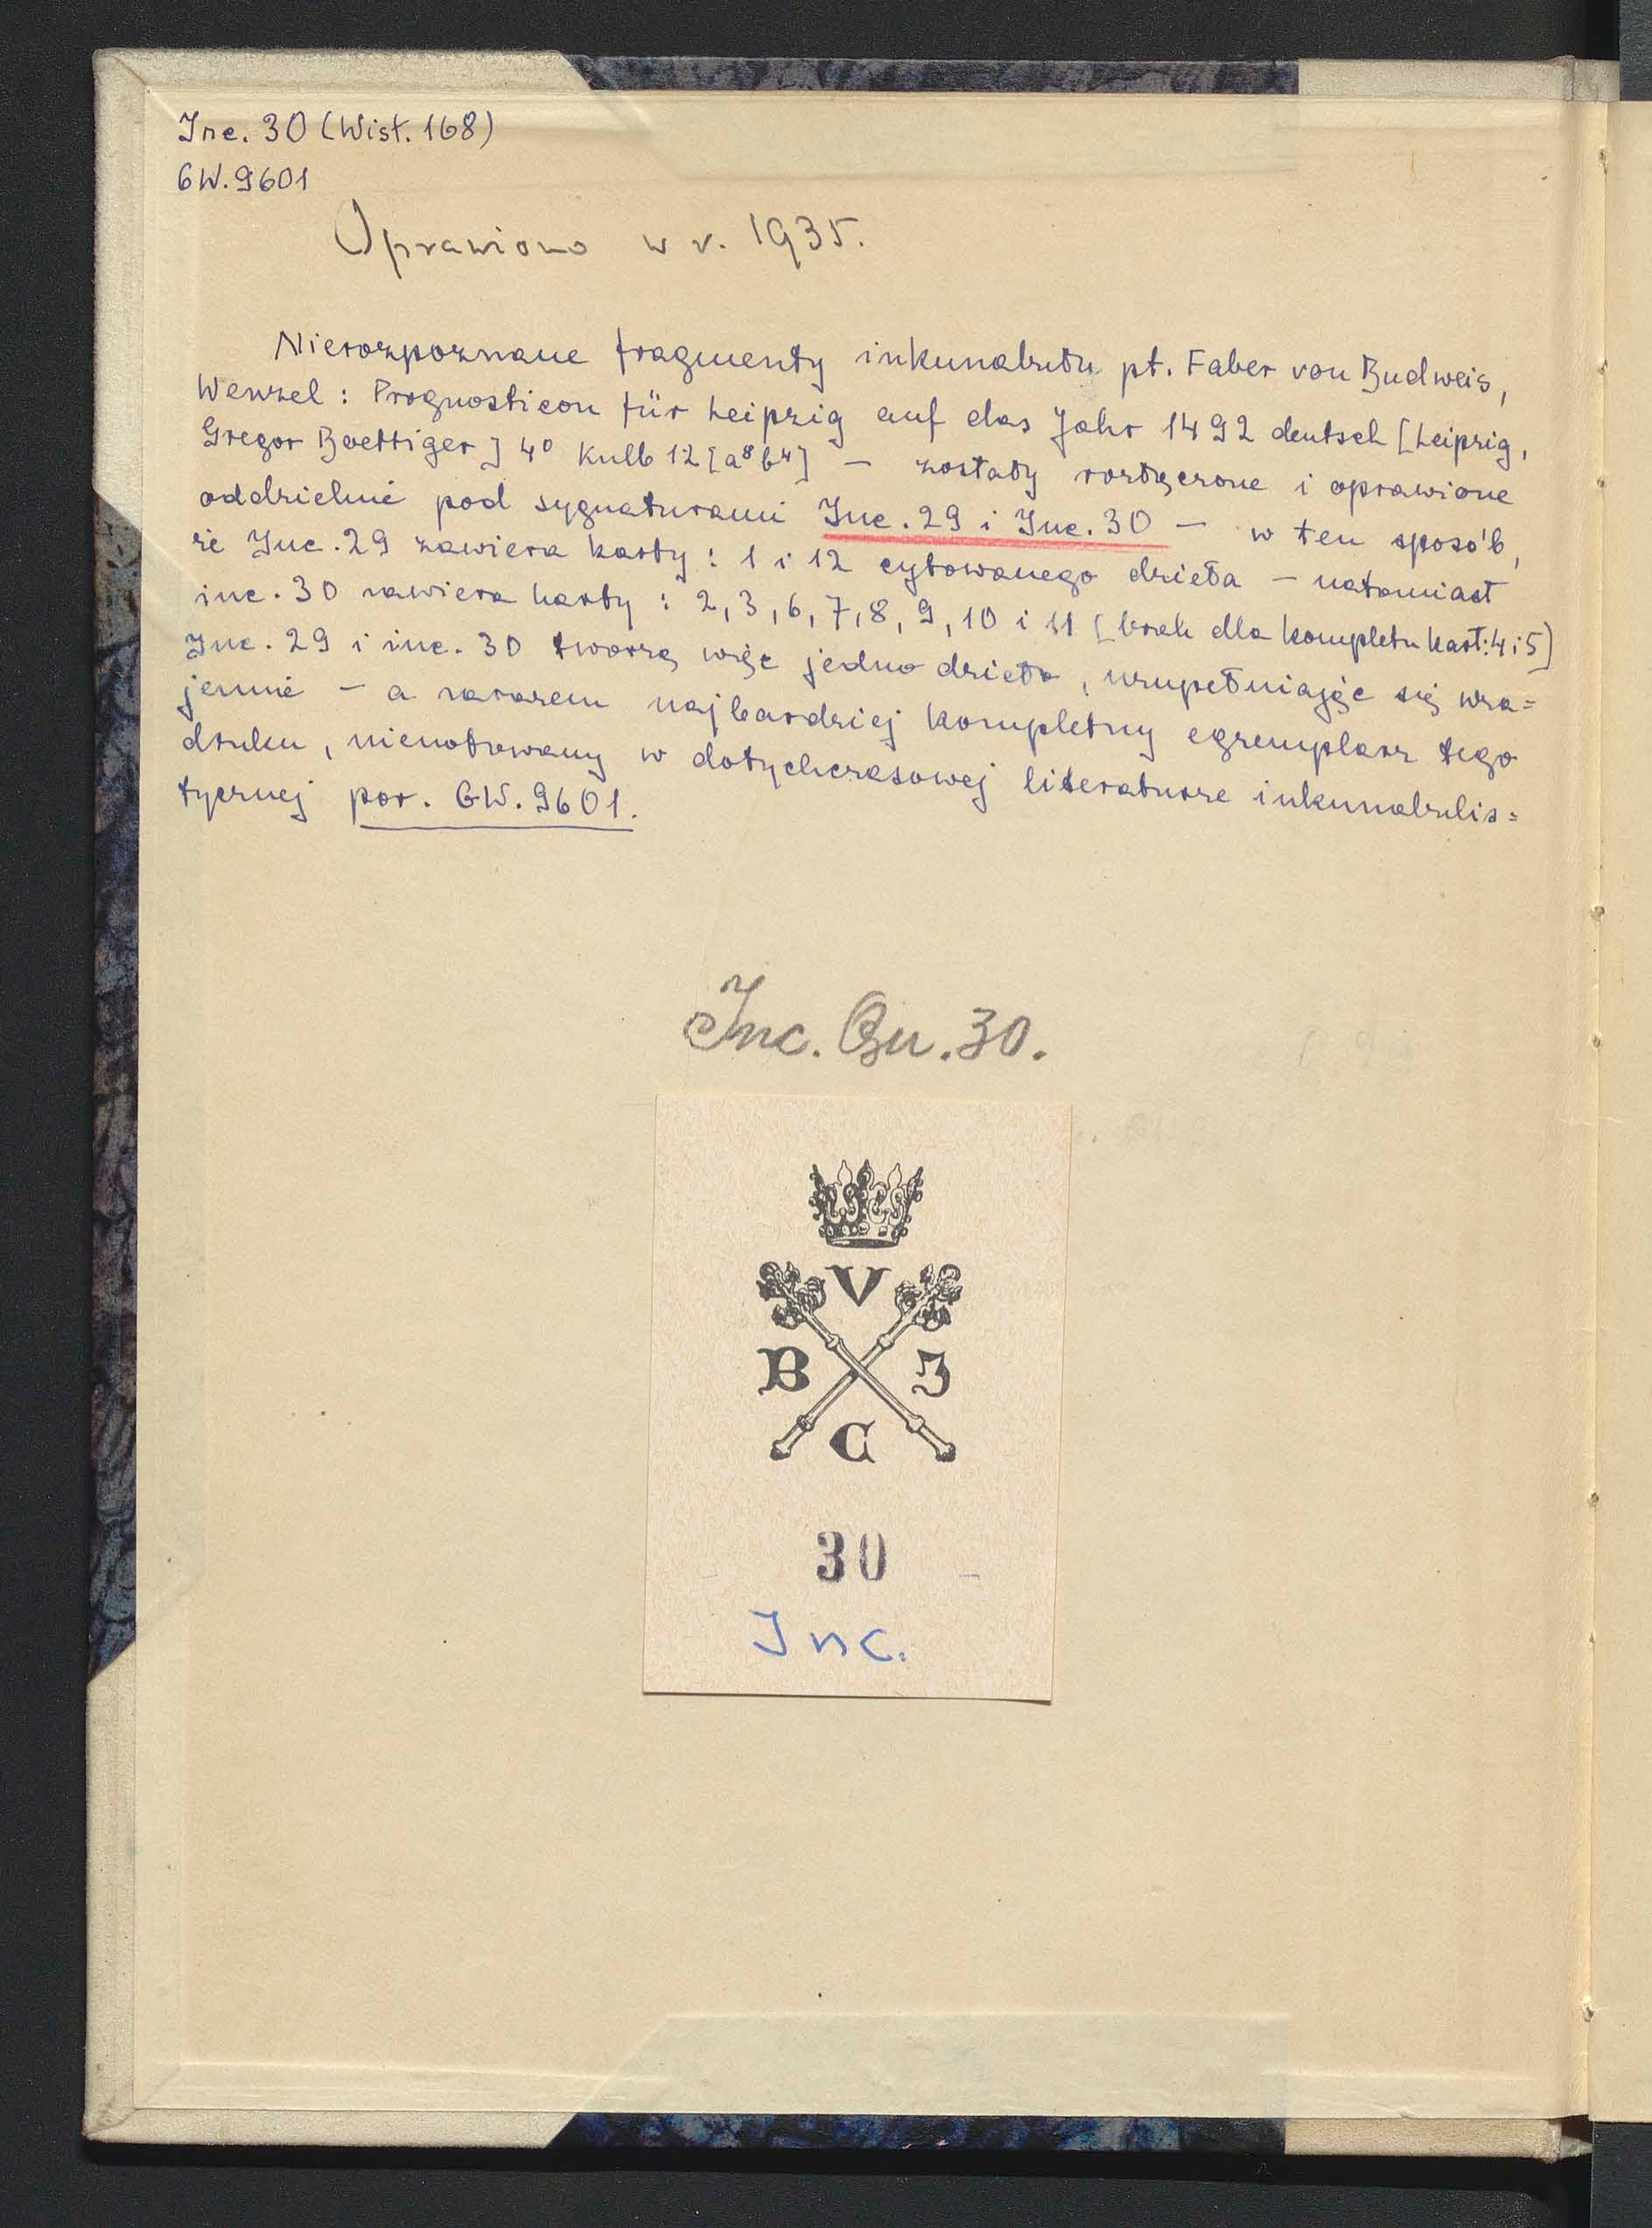 Inc. 30 (Wisł. 168)
GW. 9601
Oprawiono w r. 1935.
Nierozpoznane fragmenty inkunabułu pt. Faber von Budweis,
Wenzel: Prognosticon für Leipzig auf das Jahr 1492 deutsch [Leipzig,
Gregor Boettiger] 4⁰ Kullb 12 [a⁸b⁴] – zostały rozłączone i oprawione
oddzielnie pod sygnaturami Inc. 29 i Inc. 30 – w ten sposób,
że Inc. 29 zawiera karty: 1 i 12 cytowanego dzieła – natomiast
inc. 30 zawiera karty: 2, 3, 6, 7, 8, 9, 10 i 11 [brak dla kompletu kart: 4 i 5]
Inc. 29 i inc. 30 tworzą więc jedno dzieło, uzupełniając się wza=
jemnie – a zarazem najbardziej kompletny egzemplarz tego
druku, nienotowany w dotychczasowej literaturze inkunabulis=
tycznej por. GW. 9601.
Inc. Qu. 30.
V
B J
C
30
Inc.